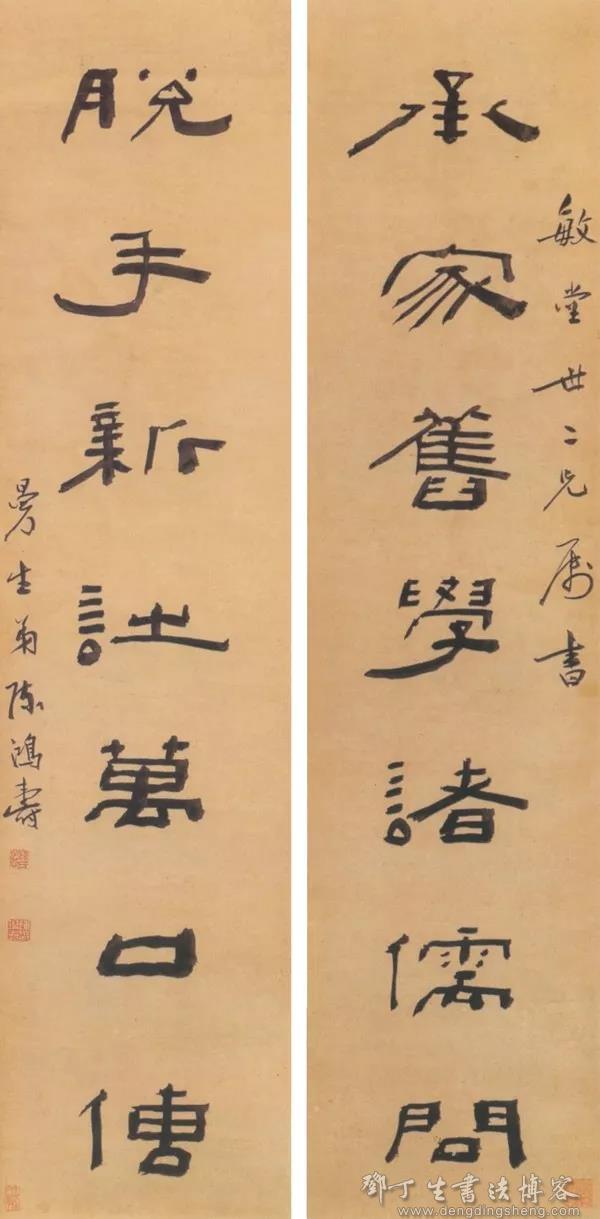 敏堂世二兄属書
承家舊學諸儒問
脫手新詩萬口傳
曼生弟陳鴻壽
鄧丁生書法博客
www.dengdingsheng.com